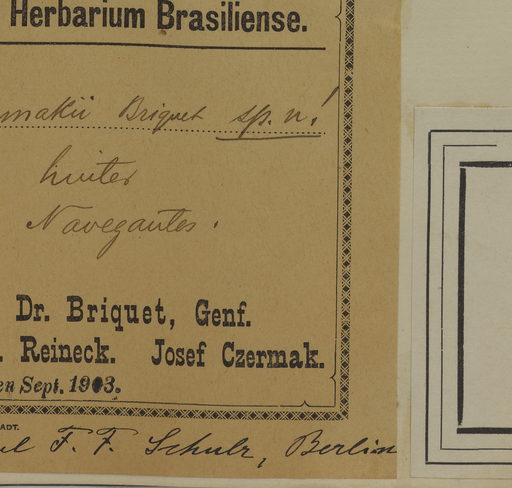 Herbarium Brasiliense.
makii Briquet sp. n.!
hinter
Navegantes.
Dr. Briquet, Genf.
. Reineck. Josef Czermak.
en Sept. 1903.
ADT.
el F. F. Schulz, Berlin